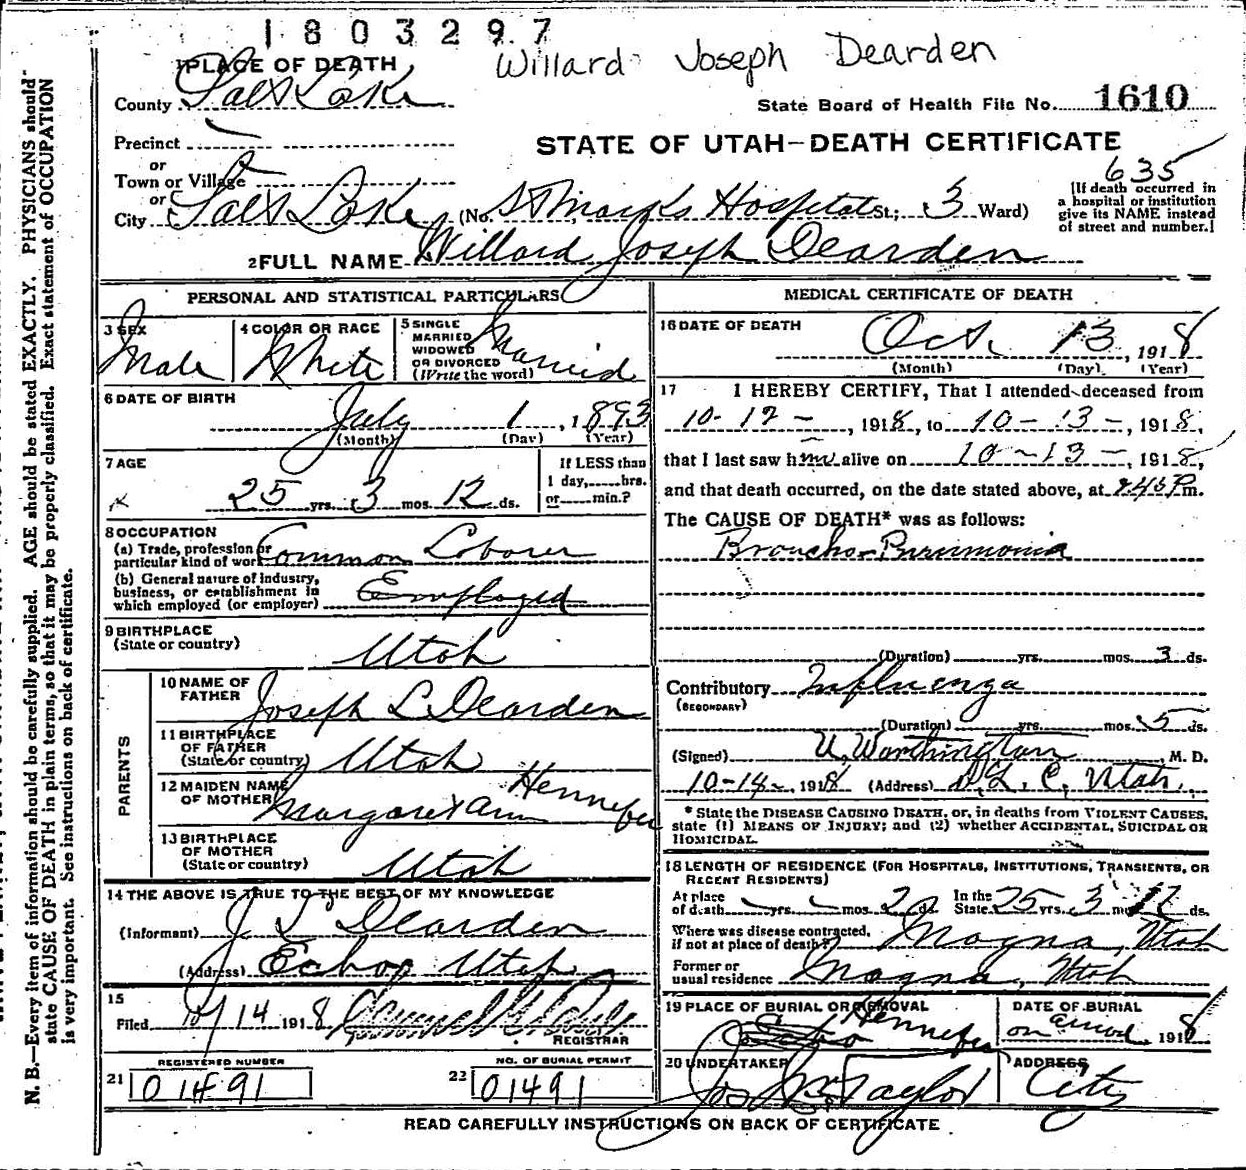 1803297
Willard Joseph Dearden
1 PLACE OF DEATH
County Salt Lake
State Board of Health File No. 1610
Precinct
STATE OF UTAH—DEATH CERTIFICATE
or
Town or Village
635
or
City Salt Lake (No. St Marks Hospital St.; 3 Ward)
[If death occurred in
a hospital or institution
give its NAME instead
of street and number.]
2 FULL NAME Willard Joseph Dearden
PERSONAL AND STATISTICAL PARTICULARS
3 SEX Male
4 COLOR OR RACE White
5 SINGLE
MARRIED
WIDOWED
OR DIVORCED
(Write the word) Married
6 DATE OF BIRTH
July 1, 1893
(Month) (Day) (Year)
7 AGE
25 yrs. 3 mos. 12 ds.
If LESS than
1 day, hrs.
or min.?
8 OCCUPATION
(a) Trade, profession or
particular kind of work Common Laborer
(b) General nature of industry,
business, or establishment in
which employed (or employer) Employed
9 BIRTHPLACE
(State or country) Utah
PARENTS
10 NAME OF
FATHER Joseph L Dearden
11 BIRTHPLACE
OF FATHER
(State or country) Utah
12 MAIDEN NAME
OF MOTHER Margaret Ann Hennefer
13 BIRTHPLACE
OF MOTHER
(State or country) Utah
14 THE ABOVE IS TRUE TO THE BEST OF MY KNOWLEDGE
(Informant) J L Dearden
(Address) Echo Utah
15
Filed 10/14 1918
REGISTRAR
REGISTERED NUMBER
21 01491
NO. OF BURIAL PERMIT
22 01491
MEDICAL CERTIFICATE OF DEATH
16 DATE OF DEATH
Oct. 13, 1918
(Month) (Day) (Year)
17 I HEREBY CERTIFY, That I attended deceased from
10-12-, 1918, to 10-13-, 1918,
that I last saw him alive on 10-13-, 1918,
and that death occurred, on the date stated above, at m.
The CAUSE OF DEATH* was as follows:
Broncho-Pneumonia
(Duration) yrs. mos. 3 ds.
Contributory Influenza
(SECONDARY)
(Duration) yrs. mos. 5 ds.
(Signed) U. Worthington, M. D.
10-14-, 1918 (Address) S. L. C, Utah.
* State the DISEASE CAUSING DEATH, or, in deaths from VIOLENT CAUSES,
state (1) MEANS OF INJURY; and (2) whether ACCIDENTAL, SUICIDAL OR
HOMICIDAL.
18 LENGTH OF RESIDENCE (FOR HOSPITALS, INSTITUTIONS, TRANSIENTS, OR
RECENT RESIDENTS)
At place
of death yrs. mos. 2 ds.
In the
State 25 yrs. 3 mos. 12 ds.
Where was disease contracted,
if not at place of death? Magna, Utah
Former or
usual residence Magna, Utah
19 PLACE OF BURIAL OR REMOVAL
Hennefer
DATE OF BURIAL
1918
20 UNDERTAKER
Jos Wm Taylor
ADDRESS
City
READ CAREFULLY INSTRUCTIONS ON BACK OF CERTIFICATE
N. B.—Every item of information should be carefully supplied. AGE should be stated EXACTLY. PHYSICIANS should
state CAUSE OF DEATH in plain terms, so that it may be properly classified. Exact statement of OCCUPATION
is very important. See instructions on back of certificate.